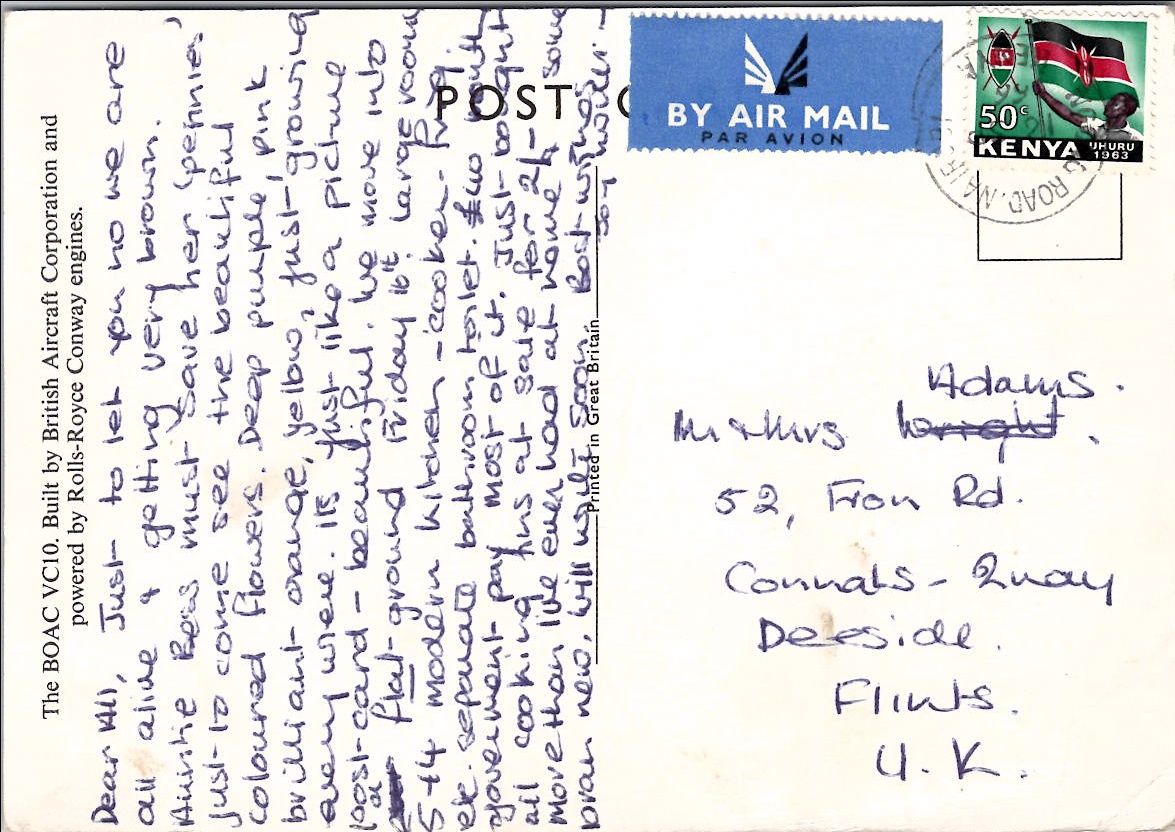 The BOAC VC10. Built by British Aircraft Corporation and
powered by Rolls-Royce Conway engines.
POST
BY AIR MAIL
PAR AVION
50c
KENYA UHURU
1963
G ROAD. NAIR
Dear All, Just to let you no we are
all alive & getting very brown.
Auntie Bess must save her pennies
just to come see the beautiful
coloured flowers. Deep purple, pink
brilliant orange, yellow, just growing
every where. Its just like a picture
post-card - beautiful. We move into
a flat ground Friday 16t. Large room
5 + 4 modern kitchen - cooker - frig
etc. separate bathroom toilet.
government pay most of it. Just bought
all cooking tins at sale for 2/-
more than I've ever had at home & some
bran new, will write soon. Best wishes
Printed in Great Britain
Adams.
Mr & Mrs Wright.
52, Fron Rd.
Connals-Quay
Deeside.
Flints.
U.K.